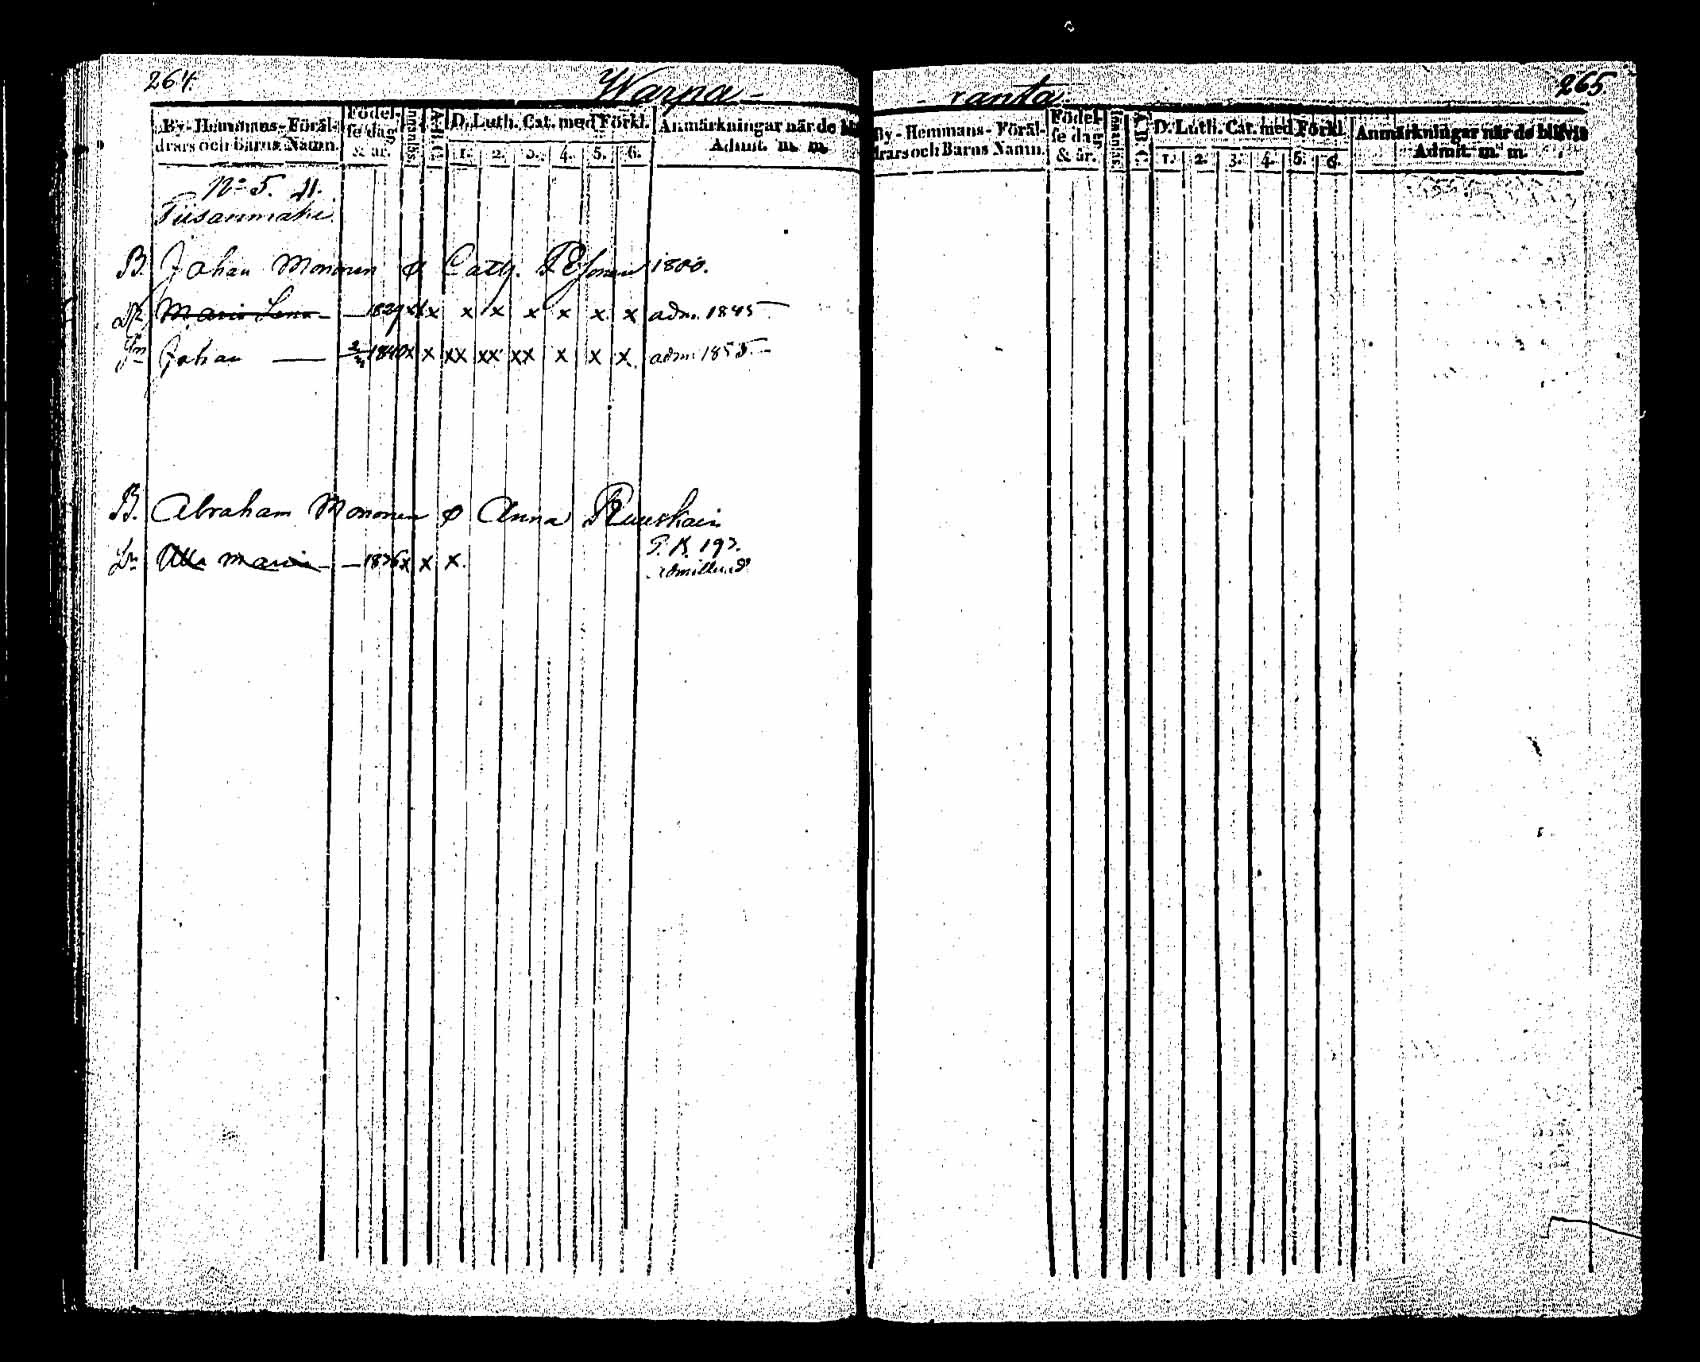 264.
Warpa-
By-Hemmans-Föräl-
drars och Barns Namn.
Födel-
se dag
& år.
A.B.C.
D. Luth. Cat. med Förkl.
1. 2. 3. 4. 5. 6.
Anmärkningar når de bli
Admit. m. m.
No 5.
B. Johan Mononen & Cath. 1800.
Maria Lena - 1829 x x x x x x x x adm. 1845
Johan - 1840 x x xx xx xx x x x adm 1855.-
B. Abraham Mononen & Anna Ruuskain
Ulla Maria - 1836 x x x. P. K. 193.
-ranta
265
By-Hemmans-Föräl-
drars och Barns Namn.
Födel-
se dag
& år.
A.B.C.
D. Luth. Cat. med Förkl.
1. 2. 3. 4. 5. 6.
Anmärkningar når de blifvit
Admit. m. m.